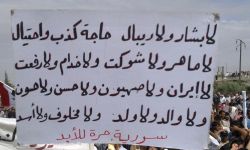 لا بشار ولا ريبال حاجة كذب واحتيال
لا ماهر ولا شوكت ولا خدام ولا رفعت
لا ايران ولا صهيون ولا حسن ولا هون
ولا والد ولا ولد ولا مخلوف ولا أسد
سورية حرة للأبد